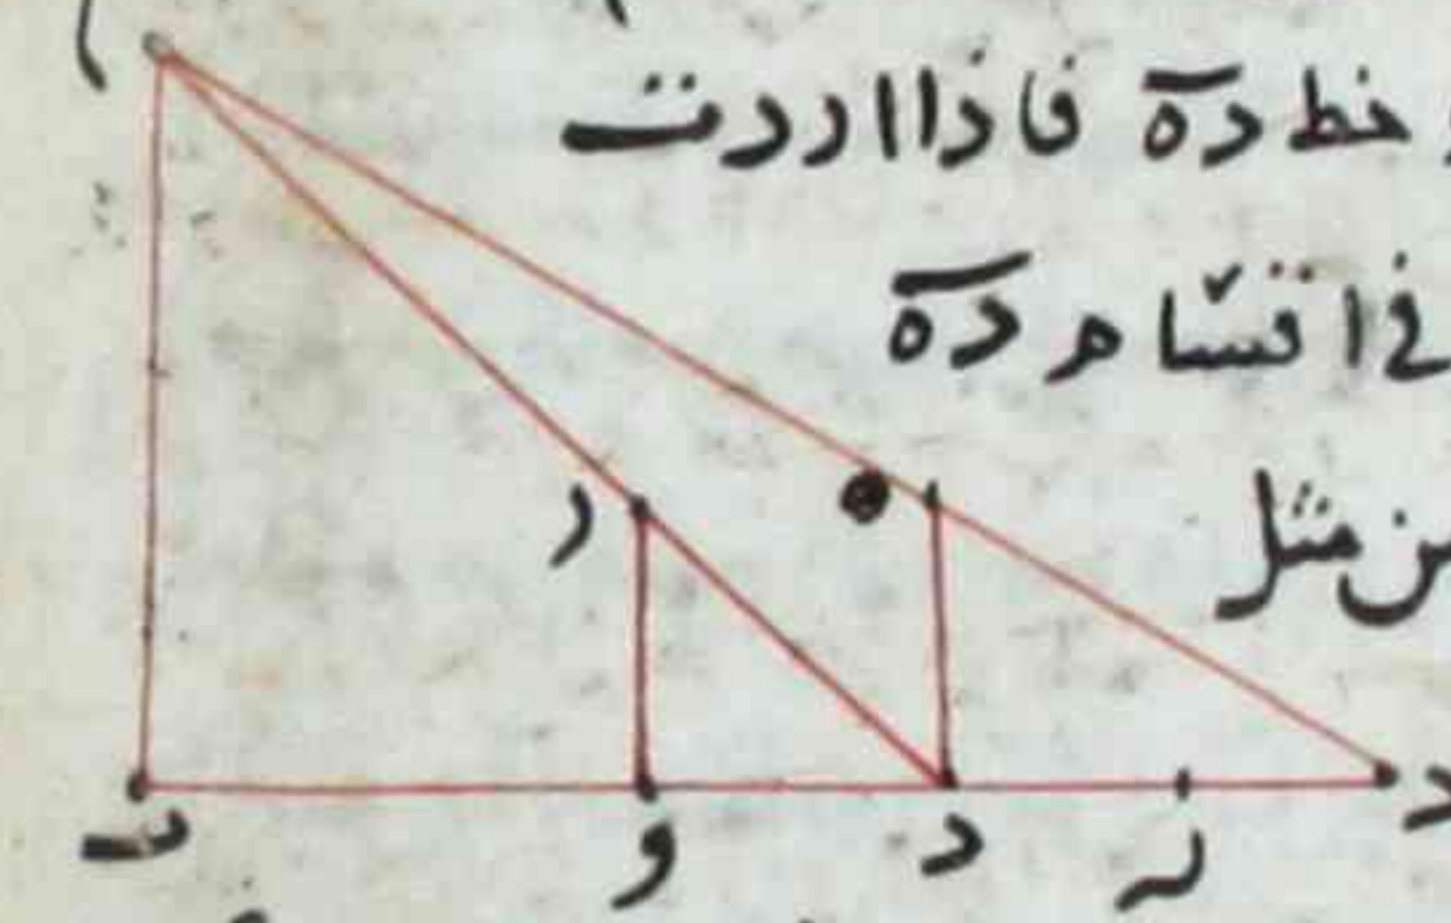 خط دَه فاذا اردت
فى اقسام دَه
مثل
ا
ر
ه
ب
و
د